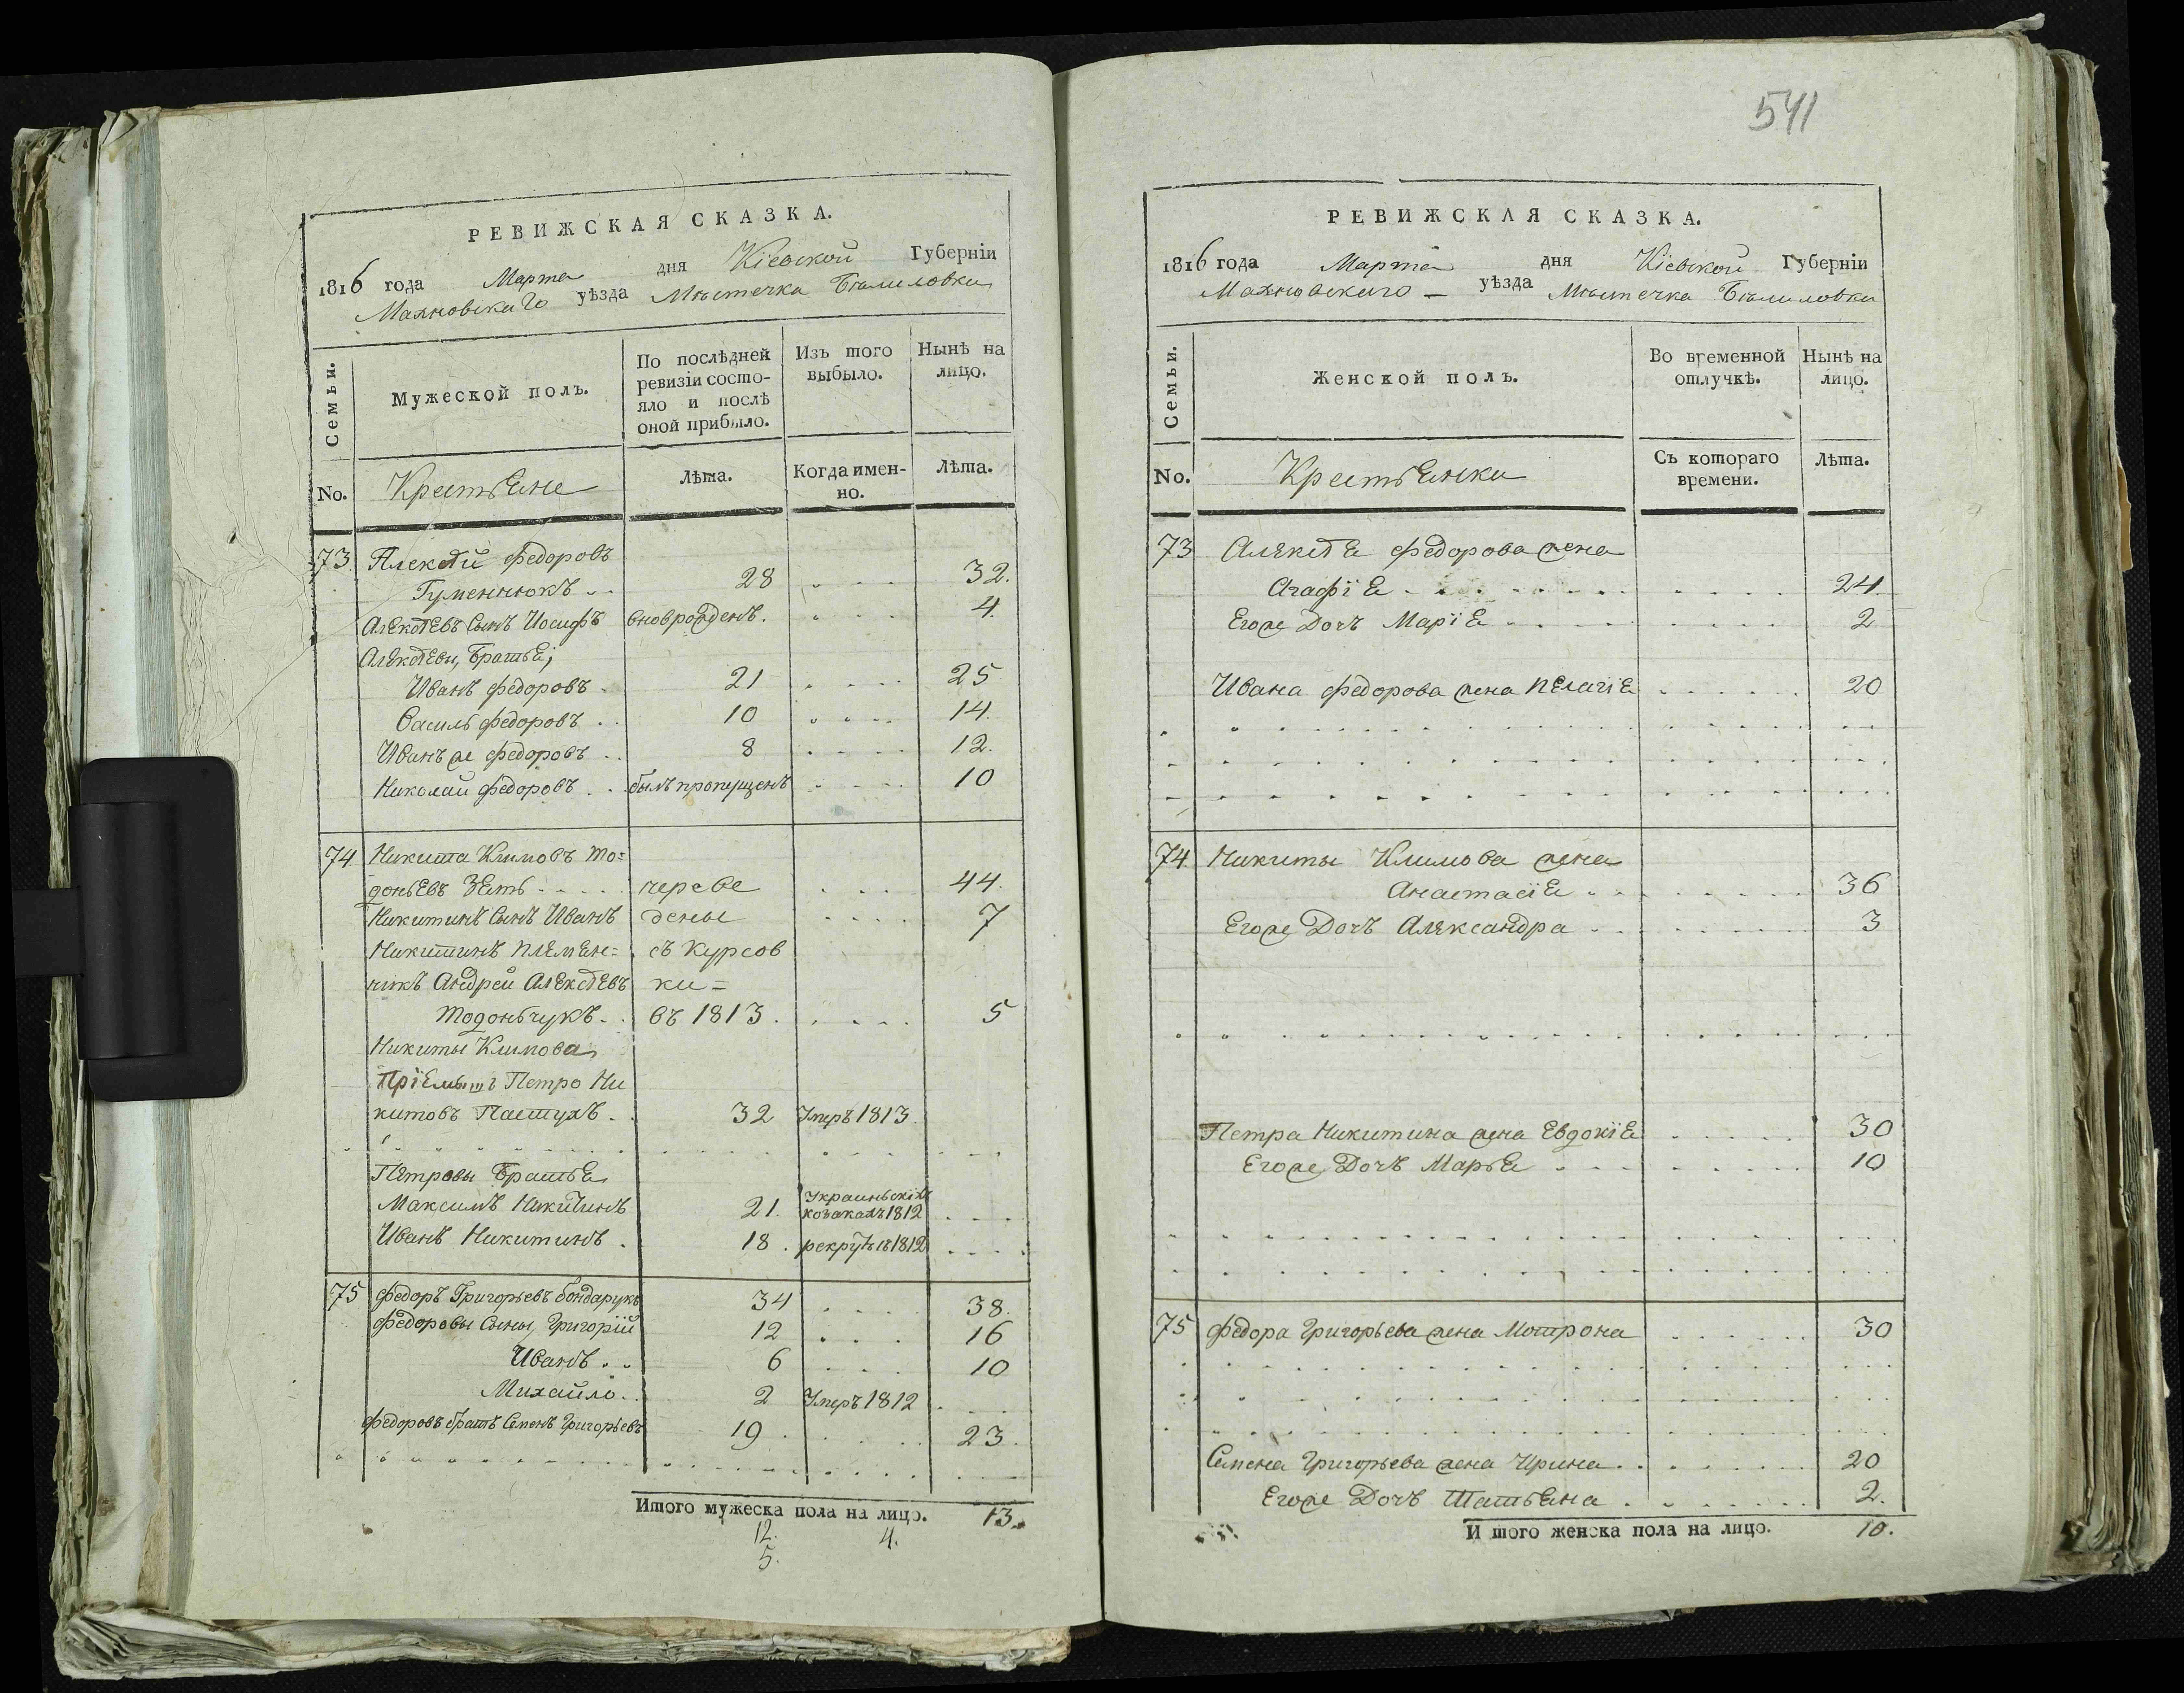 541
РЕВИЖСКАЯ СКАЗКА.
1816 года Марта дня Кіевской Губерніи
Махновскаго уѣзда Мѣстечка Бѣлиловки
Семьи.
Мужеской полъ.
По послѣдней ревизіи состо-
яло и послѣ
оной прибыло.
Изъ того
выбыло.
Нынѣ на
лицо.
No.
Крестьяне
Лѣта.
Когда имен-
но.
Лѣта.
73. Алексѣй Федоровъ
Гуменнюкъ 28 32.
Алексѣевъ Сынъ Иосифъ вноврожденъ. 4.
Алексѣевы, Братья,
Иванъ Федоровъ 21 25
Василь Федоровъ 10 14.
Иванъ же Федоровъ 8 12.
Николай Федоровъ былъ пропущенъ 10
74. Никита Климовъ То=
доньевъ Зять переве 44.
Никитинъ Сынъ Иванъ дены 7
Никитинъ племян= съ Курсов
никъ Андрей Алексѣевъ ки=
Тодончукъ въ 1813. 5
Никиты Климова
Пріемышъ Петро Ни
китовъ Пастухъ 32 Умеръ 1813.
Петровы Братья
Максимъ Никитинъ 21. козакахъ 1812
Иванъ Никитинъ 18. 1812
75 Федоръ Григорьевъ Бондарукъ 34 38.
Федоровы Сыны, Григорій 12 16
Иванъ 6 10
Михайло 2 Умеръ 1812
Федоровъ братъ Семенъ Григорьевъ 19 23.
Итого мужеска пола на лицо. 13.
12. 4.
5.
РЕВИЖСКАЯ СКАЗКА.
1816 года Марта дня Кіевской Губерніи
Махновскаго уѣзда Мѣстечка Бѣлиловки
Семьи.
Женской полъ.
Во временной
отлучкѣ.
Нынѣ на
лицо.
No.
Крестьянки
Съ котораго
времени.
Лѣта.
73 Алексѣя Федорова жена
Агафія 24.
Егоже Дочъ Марія 2
Ивана Федорова жена Пелагія 20
74. Никиты Климова жена
Анастасія 36
Егоже Дочъ Александра 3
Петра Никитина жена Евдокія 30
Егоже Дочъ Марья 10
75 Федора Григорьева жена Мотрона 30
Семена Григорьева жена Ирина 20
Егоже Дочъ Татьяна 2.
Итого женска пола на лицо. 10.